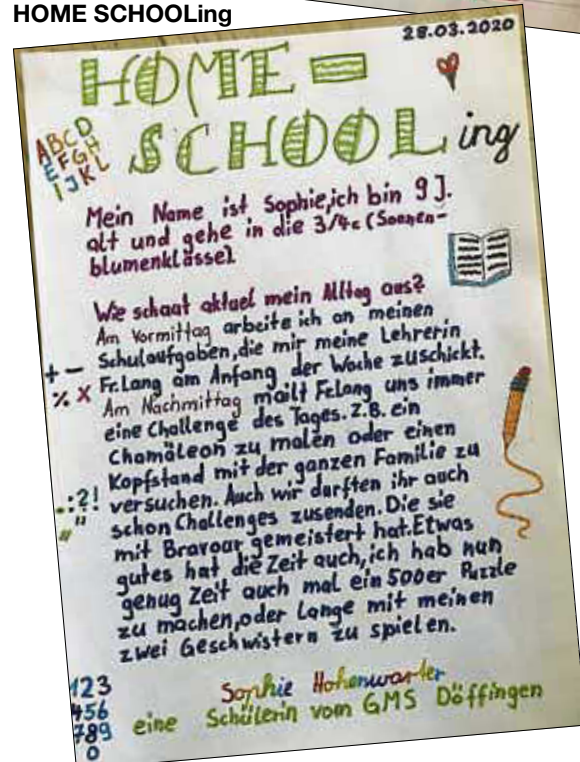 HOME SCHOOLing
28.03.2020
HOME-
SCHOOLing
ABCD
EFGH
IJKL
Mein Name ist Sophie, ich bin 9 J.
alt und gehe in die 3/4c (Sonnen-
blumenklasse).
Wie schaut aktuel mein Alltag aus?
Am Vormittag arbeite ich an meinen
Schulaufgaben, die mir meine Lehrerin
Fr. Lang am Anfang der Woche zuschickt.
Am Nachmittag mailt Fr. Lang uns immer
eine Challenge des Tages. Z.B. ein
Chamäleon zu malen oder einen
Kopfstand mit der ganzen Familie zu
versuchen. Auch wir durften ihr auch
schon Challenges zusenden. Die sie
mit Bravour gemeistert hat. Etwas
gutes hat die Zeit auch, ich hab nun
genug Zeit auch mal ein 500er Puzzle
zu machen, oder lange mit meinen
zwei Geschwistern zu spielen.
+ -
% x
.:?!
„"
123
456
789
0
Sophie Hohenwarter
eine Schülerin vom GMS Döffingen